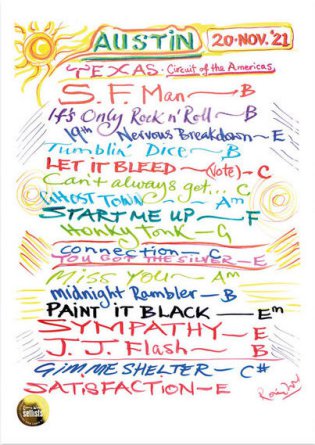 AUSTIN 20·NOV.'21
TEXAS · Circuit of the Americas
S.F. Man — B
It's Only Rock n' Roll — B
19th Nervous Breakdown — E
Tumblin' Dice — B
LET IT BLEED — (Vote) — C
Can't always get... C
GHOST TOWN — Am
START ME UP — F
Honky Tonk — G
connection — C
YOU GOT THE SILVER — E
MISS YOU — Am
midnight Rambler — B
PAINT IT BLACK — Em
SYMPATHY — E
J.J. Flash — B
GIMME SHELTER — C#
SATISFACTION — E
setlists